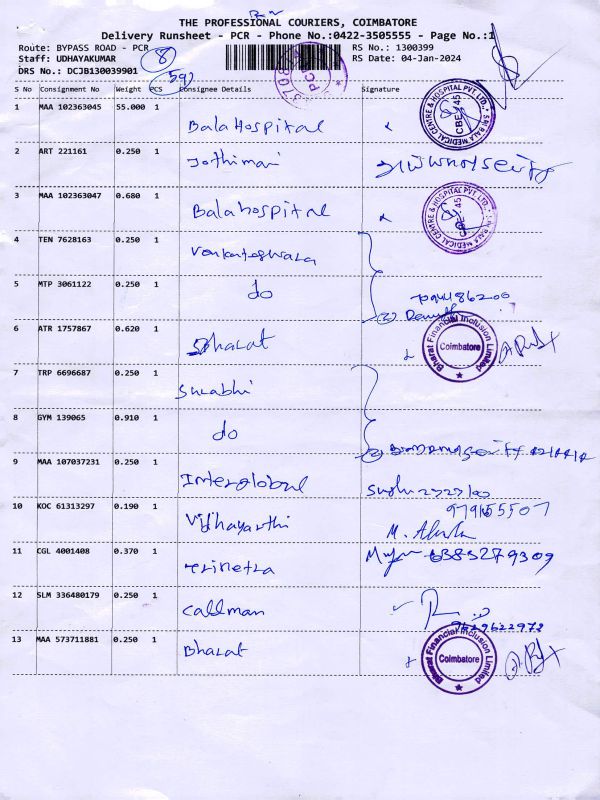 THE PROFESSIONAL COURIERS, COIMBATORE
Delivery Runsheet - PCR - Phone No.:0422-3505555 - Page No.:1
Route: BYPASS ROAD - PCR RS No.: 1300399
Staff: UDHAYAKUMAR 8 RS Date: 04-Jan-2024
DRS No.: DCJB130039901
S No Consignment No Weight PCS Consignee Details Signature
1 MAA 102363045 55.000 1 Bala Hospital
SRI BALA MEDICAL CENTRE & HOSPITAL PVT LTD., CBE-45
2 ART 221161 0.250 1 Jothimani
3 MAA 102363047 0.680 1 Bala hospital
SRI BALA MEDICAL CENTRE & HOSPITAL PVT LTD., CBE-45
4 TEN 7628163 0.250 1 Venkateshwara
5 MTP 3061122 0.250 1 do
6 ATR 1757867 0.620 1 Bharat
Bharat Financial Inclusion Limited Coimbatore
7 TRP 6696687 0.250 1 Surabhi
8 GYM 139065 0.910 1 do
9 MAA 107037231 0.250 1 Interglobal
10 KOC 61313297 0.190 1 Vidhayarthi
11 CGL 4001408 0.370 1 Trinetra 6385279309
12 SLM 336480179 0.250 1 Callman
9629622972
13 MAA 573711881 0.250 1 Bharat
Bharat Financial Inclusion Limited Coimbatore